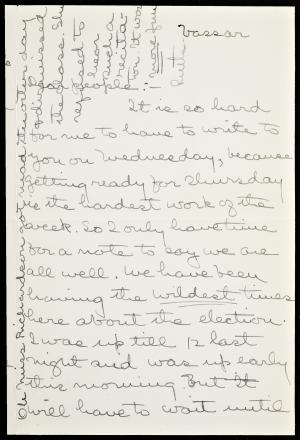 Vassar
Dear people:-
It is so hard
for me to have to write to
you on Wednesday, because
getting ready for Thursday
is the hardest work of the
week. So I only have time
for a note to say we are
all well. We have been
having the wildest times
here about the election.
I was up till 12 last
night and was up early
this morning. But it
will have to wait until
Oh Miss Richardson got mad the other day
& dismissed
the class. She
refused to
hear
such a
recita-
tion. It was
more fun